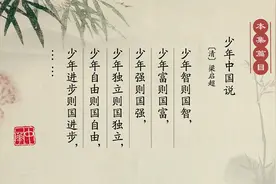 本集篇目
少年中国说
〔清〕梁启超
少年智则国智，
少年富则国富，
少年强则国强，
少年独立则国独立，
少年自由则国自由，
少年进步则国进步，
……